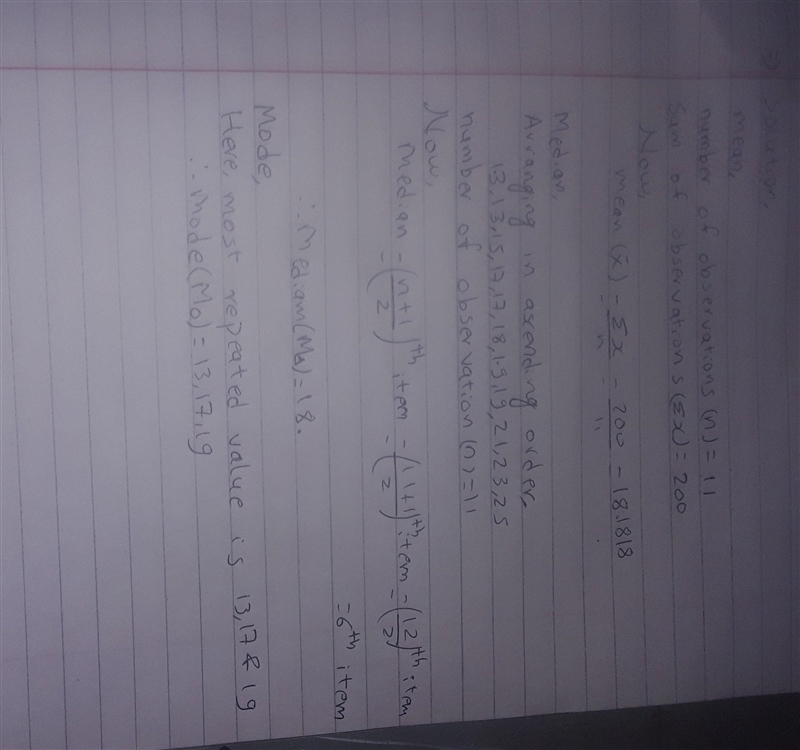 Solution,
mean,
number of observations (n) = 11
Sum of observations (Σx) = 200
Now,
mean (x̄) = Σx/n = 200/11 = 18.1818
Median,
Arranging in ascending order,
13,13,15,17,17,18,19,19,21,23,25
number of observation (n) = 11
Now,
Median = (n+1/2)th item = (11+1/2)th item = (12/2)th item
= 6th item
∴ Median(Md) = 18.
Mode,
Here, most repeated value is 13,17 & 19
∴ Mode(Mo) = 13,17,19